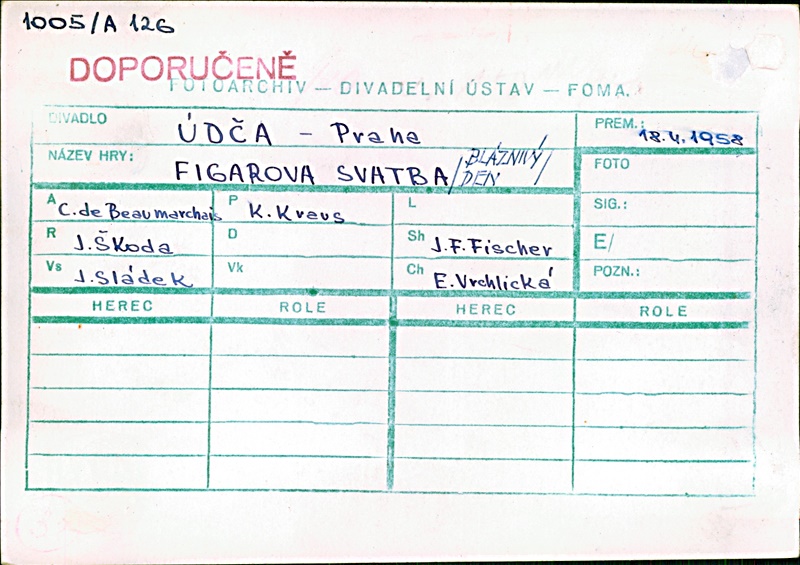 1005/A 126
DOPORUČENĚ
FOTOARCHIV — DIVADELNÍ ÚSTAV — FOMA.
DIVADLO ÚDČA - Praha PREM.: 18.4.1958
NÁZEV HRY: FIGAROVA SVATBA /BLÁZNIVÝ DEN/ FOTO
A C. de Beaumarchais P K. Kraus L SIG.:
R J. Škoda D Sh J.F. Fischer E/
Vs J. Sládek Vk Ch E. Vrchlická POZN.:
HEREC ROLE HEREC ROLE